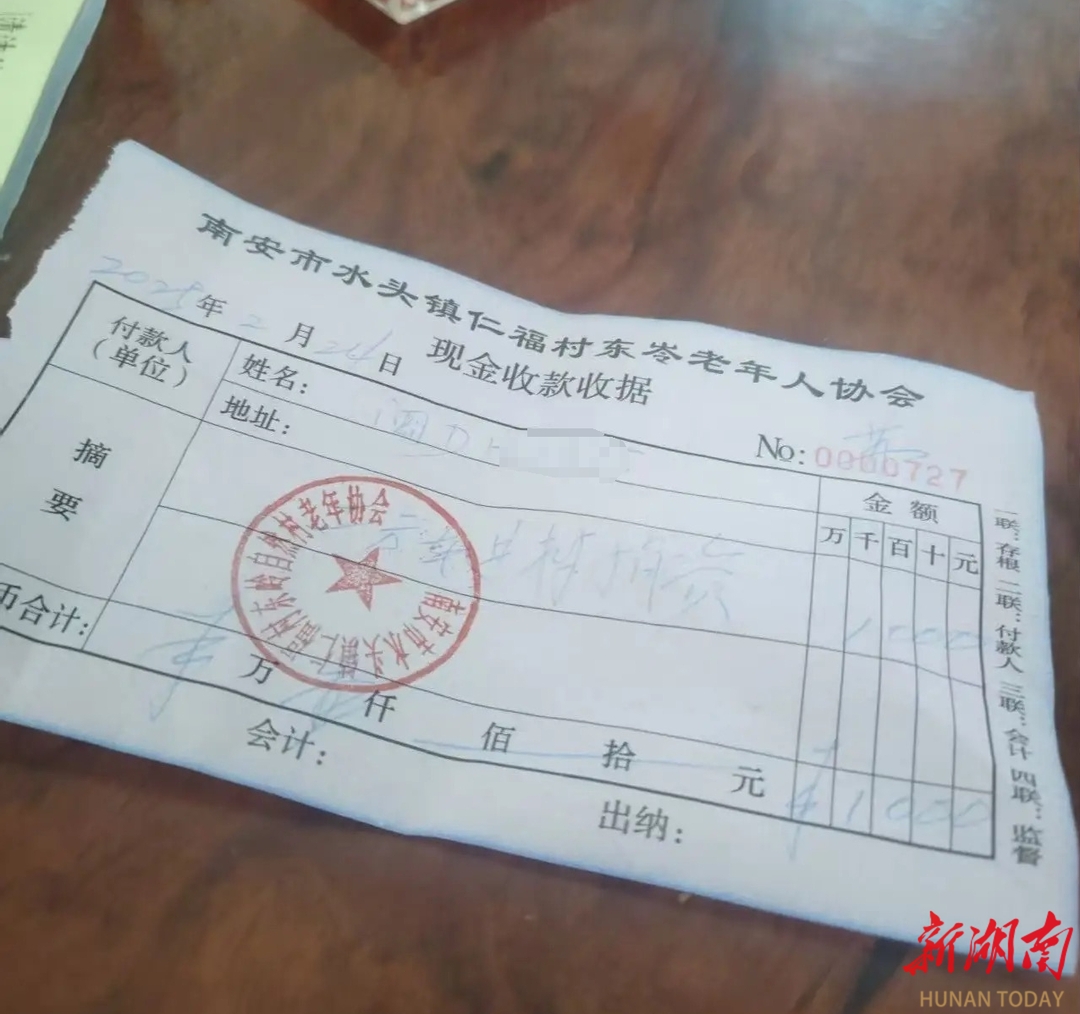 南安市水头镇仁福村东岑老年人协会
现金收款收据
2025年2月24日
No: 0000727
付款人
(单位)
姓名: 闽D
地址:
金额
万千百十元
摘要
1000
币合计: 万 仟 佰 拾 元 ¥1000
会计:
出纳:
一联:存根 二联:付款人 三联:会计 四联:监督
南安市水头镇仁福村东岭自然村老年协会
新湖南
HUNAN TODAY